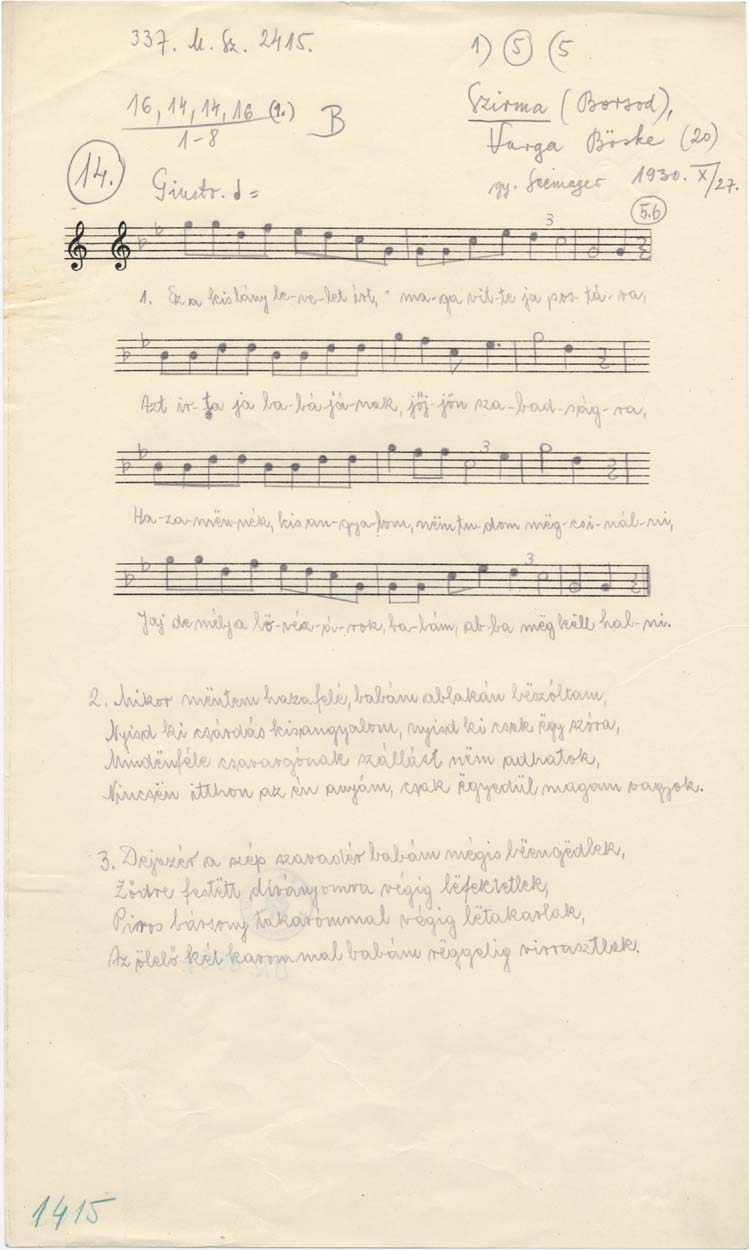 337. M. Sz. 2415.
1) 5 (5
16, 14, 14, 16 (1.)
1-8
B
Szirma (Borsod),
Varga Böske (20)
14.
Giusto.
gy. Szeimager 1930. X/27.
5.6
3
1. Ez a kislány le-ve-let írt, ma-ga vit-te ja pos-tá-ra,
Azt ír-ta ja ba-bá-já-nak, jöj-jön sza-bad-ság-ra,
3
Ha-za-mën-nék, kis an-gya-lom, nëm tu-dom mëg-csi-nál-ni,
3
Jaj de mélja lö-vész-á-rok, ba-bám, ab-ba mëg këll hal-ni.
2. Mikor mëntem hazafelé, babám ablakán bëszóltam,
Nyisd ki csárdás kisangyalom, nyisd ki csak ëgy szóra,
Mindënféle csavargónak szállást nëm adhatok,
Nincsën itthon az én anyám, csak ëgyedül magam vagyok.
3. Dejszér a szép szavadér babám mégis bëengëdlek,
Ződre festëtt díványomra végig lëfektetlek,
Piros bársony takarommal végig lëtakarlak,
Az ölelő két karommal babám rëggelig virrasztlak.
1415